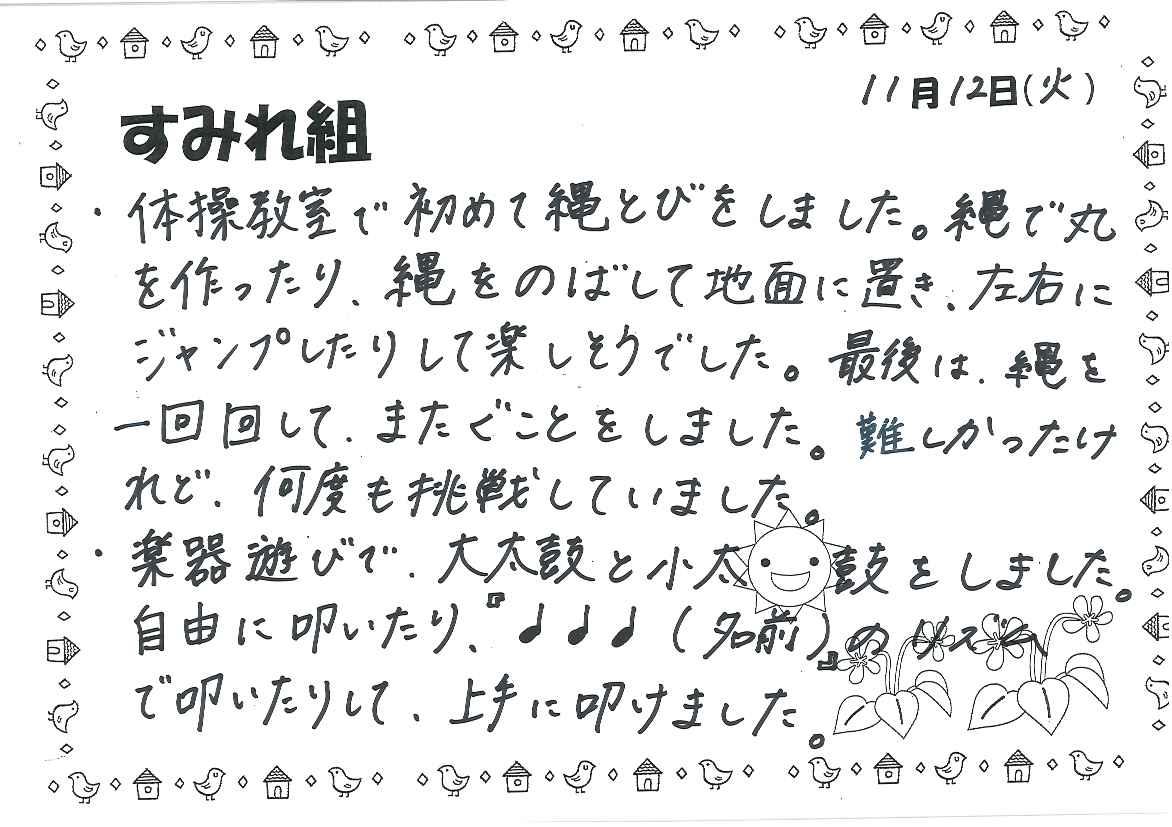 11月12日(火)
すみれ組
・体操教室で初めて縄とびをしました。縄で丸
を作ったり、縄をのばして地面に置き、左右に
ジャンプしたりして楽しそうでした。最後は、縄を
一回回して、またぐことをしました。難しかったけ
れど、何度も挑戦していました。
・楽器遊びで、大太鼓と小太鼓をしました。
自由に叩いたり、『♩♩♩(名前)』のリズム
で叩いたりして、上手に叩けました。